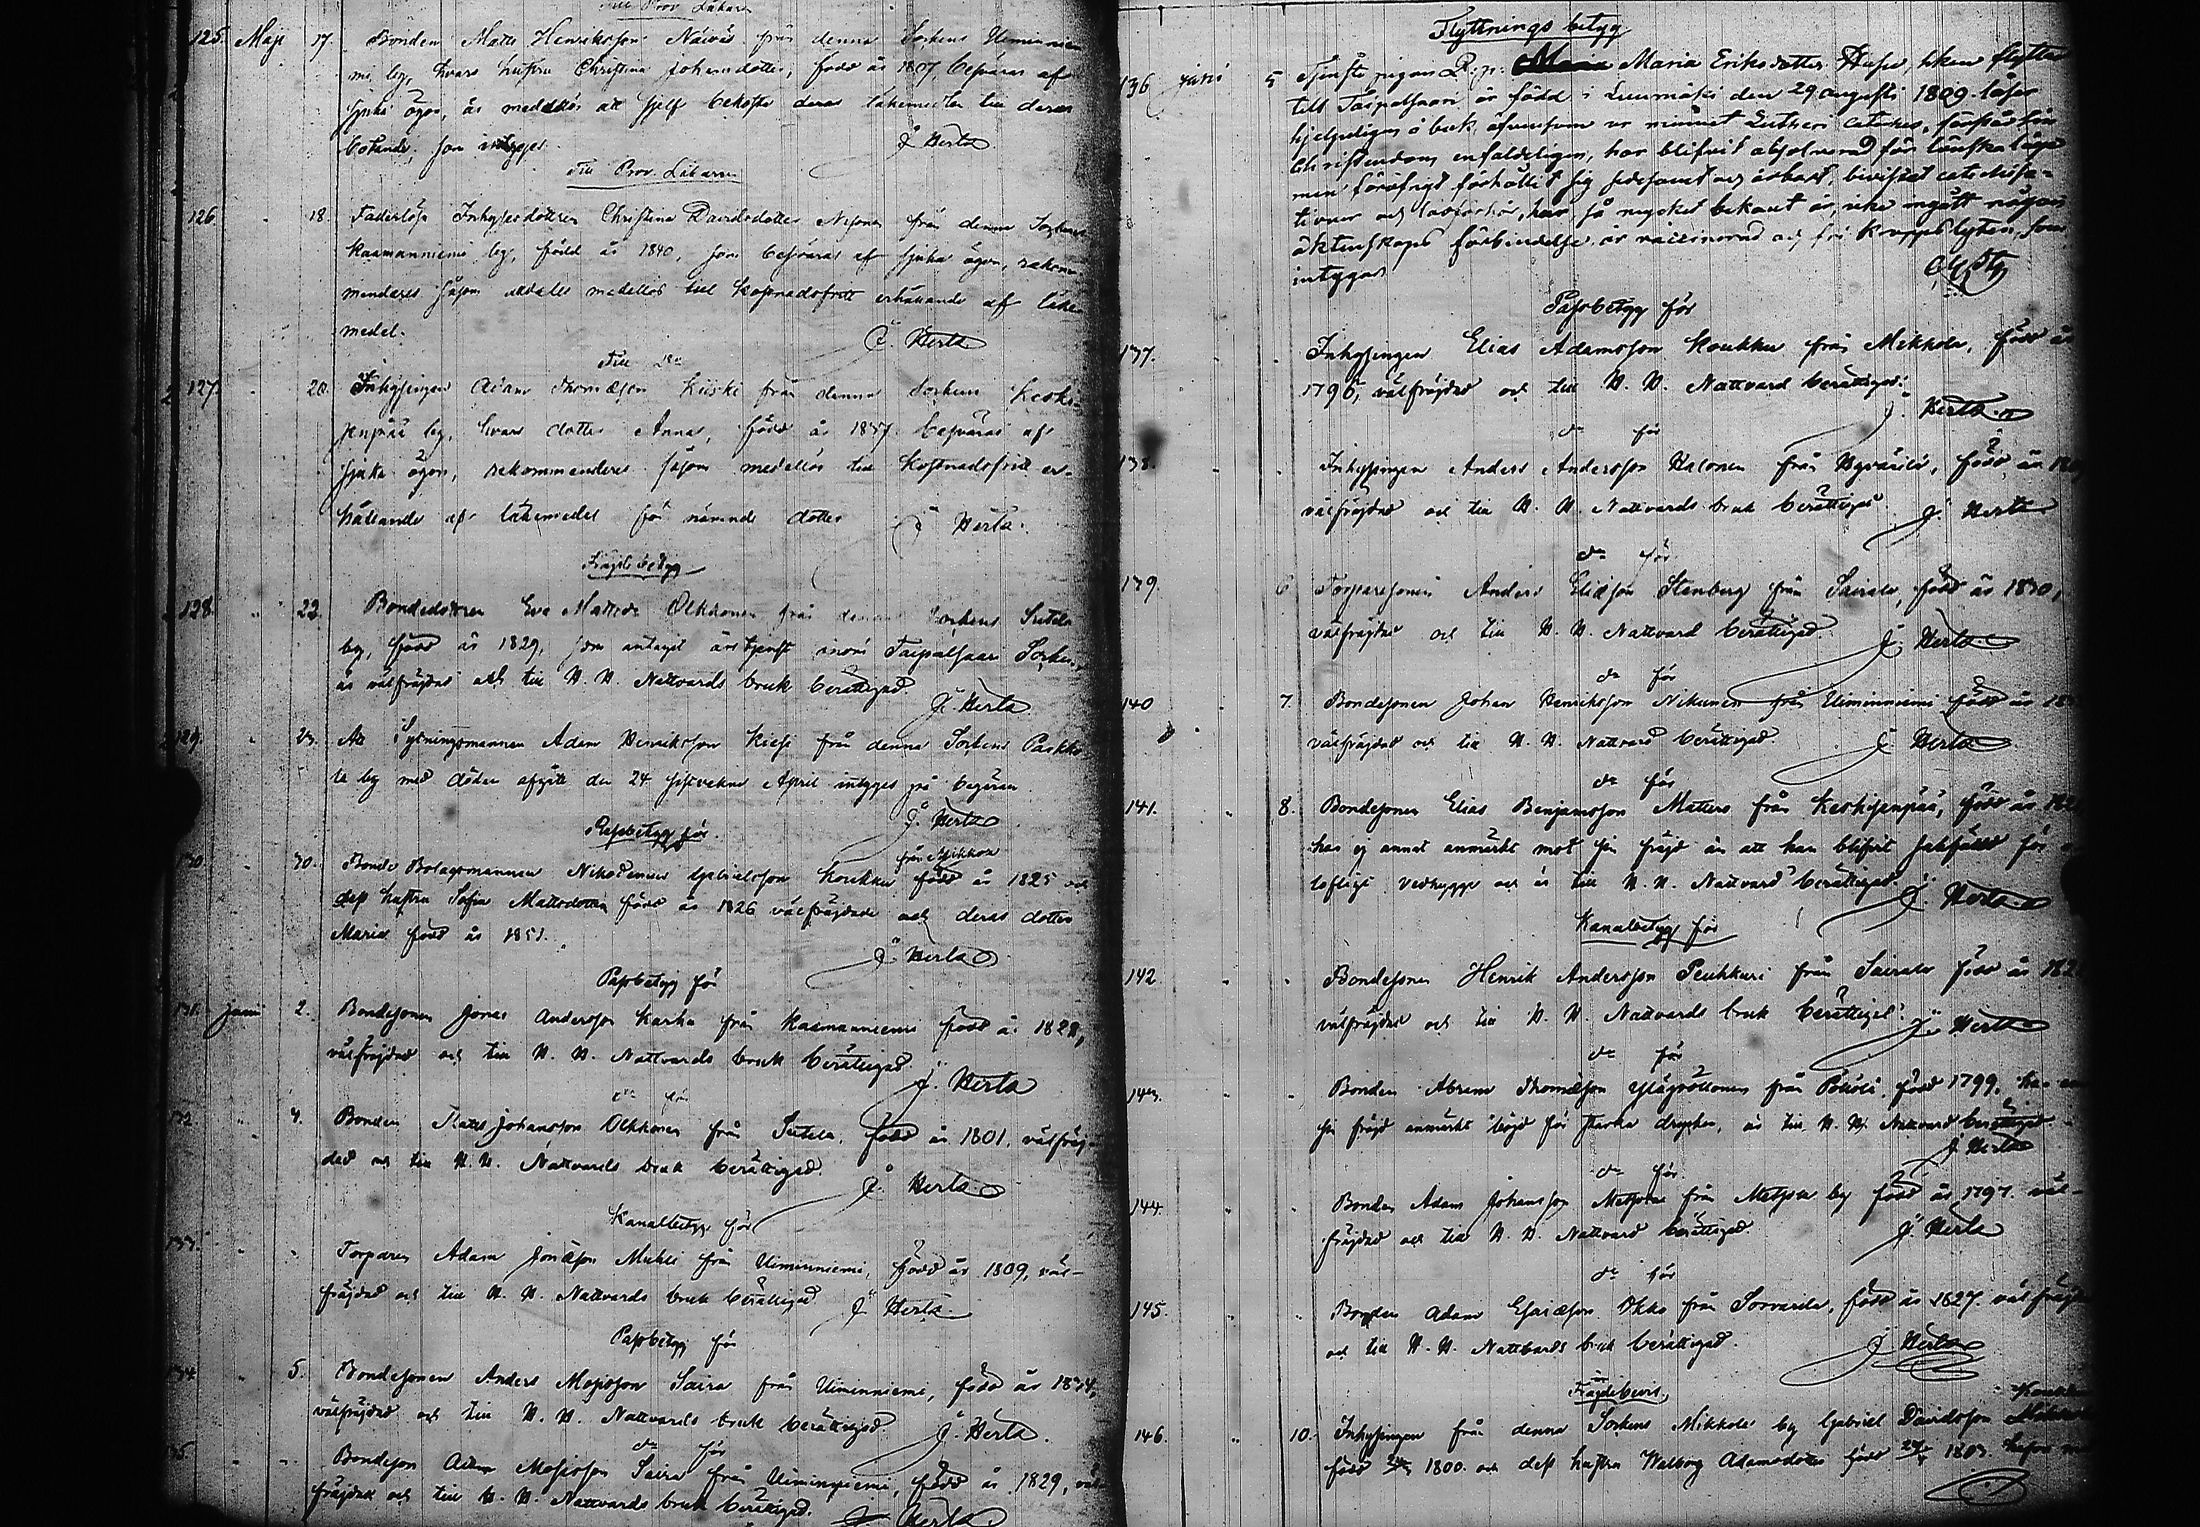 Till Prov. Läkare
125. Maji 17. Bonden Matts Henriksson från denna Sockens Uiminnie
mi by, hvars hustru Christina Johansdotter, född år 1807 besväras af
sjuka ögon, är medellös att sjelf bekosta deras läkemedel till deras
botande, som intygas. J. Herts
Till Prov. Läkaren
126. 18. Faderlösa Inhysesdottren Christina Davidsdotter från denna Sockens
Kaamanniemi by, född år 1840, som besväras af sjuka ögon, rekom
menderas såsom medellös till kostnadsfritt erhållande af läke
medel. J. Herts
Till do
127. 20. Inhysingen Adam Thomasson Kiiski från denna Sockens Keski
senpää by, hvars dotter Anna, född år 1837 besväras af
sjuka ögon, rekommenderas såsom medellös till kostnadsfritt er-
hållande af läkemedel för nämnde dotter J. Herts.
Frejdebetyg
128. " 22. Bondedottren Eva Mattsdr Olkkonen från denna Sockens Sutela
by, född år 1829, som antagit årstjenst inom Taipalsaari Socken,
är välfräjdad och till H. H. Nattvards bruk berättigad. J. Herts.
129. " 23. Att Sytningsmannen Adam Henriksson från denna Sockens
la by med döden afgått den 24 sistvekne April intygas på begäran
J. Herts
Passbetyg för
130 30. Bonde Bolagsmannen Nikodemus Gabrielsson Koukku från Mikkola född år 1825 och
dess hustru Sofia Mattsdotter född år 1826 välfräjdade och deras dotter
Maria född år 1851. J. Herts
Passbetyg för
131. Junii 2. Bondesonen Jonas Andersson Karhu från Kaamanniemi född år 1828,
välfräjdad och till H. H. Nattvards bruk berättigad. J. Herts
do för
132 " 4. Bonden Matts Johansson Olkkonen från Sutela, född år 1801. välfräj-
dad och till H. H. Nattvards bruk berättigad. J. Herts
Kanalbetyg för
133. " " Torparen Adam Jonasson Muhli från Uiminniemi, född år 1809, väl-
fräjdad och till H. H. Nattvards bruk berättigad J. Herts.
Passbetyg för
134 " 5. Bondesonen Anders Mosisson Saira från Uiminniemi, född år 1834,
välfräjdad och till H. H. Nattvards bruk berättigad. J. Herts.
do för
135 " " Bondeson Adam Mosisson Saira från Uiminniemi, född år 1829, väl-
fräjdad och till H. H. Nattvards bruk berättigad. J. Herts
Flyttnings betyg
136 Junii 5 Tjenste pigan Maria Eriksdotter flyttar
till Taipalsaari är född i Luumäki den 29 augusti 1809. läser
hjelpeligen i bok, äfvensom ur minnet Lutheri Cateches, förstår sin
Christendom enfaldeligen, har blifvit absolverad för lönskaläge
men föröfrigt förhållit sig sedesamt och ärbart, bevistat catechisa-
tioner och läsförhör, har så mycket bekant är, icke ingått någon
äktenskaps förbindelse, är vaccinerad och fri kroppslyten, som
intygas
Passbetyg för
137. Inhysingen Elias Adamsson Koukku från Mikkola, född år
1796, välfräjdad och till H. H. Nattvard berättigad. J. Herts
do för
138. " " Inhysingen Anders Andersson Halonen från född år
välfräjdad och till H. H. Nattvards bruk berättigad. J. Herts
do för
139. 6 Torparesonen Anders Eliasson Stenberg från Sairala, född år 1830,
välfräjdad och till H. H. Nattvard berättigad. J. Herts
do för
140 " 7. Bondesonen Johan Henriksson Nikunen från Uiminniemi född år
välfräjdad och till H. H. Nattvard berättigad J. Herts
do för
141. " 8. Bondesonen Elias Benjamsson Mattero från Keskisenpää, född år
har ej annat anmärkt mot sin fräjd än att han blifvit sakfälld för o
loflig vedhygge och är till H. H. Nattvard berättigad. J. Herts
Kanalbetyg för
142 " " Bondesonen Henrik Andersson Peuhkuri från Sairala född år
välfräjdad och till H. H. Nattvards bruk berättigad. J. Herts
do för
143. " " Bonden Abram Thomasson från född 1799. har
sin fräjd anmärkt böjd för starka drycker, är till H. H. Nattvard berättigad
J. Herts
do för
144. " " Bonden Adam Johansson Metsola från Metsola by född år 1797. väl-
fräjdad och till H. H. Nattvard berättigad. J. Herts
do för
145. " " Bonden Adam Esaiasson Okko från Sorvarila, född år 1827. välfräjda
och till H. H. Nattvards bruk berättigad. J. Herts
Fräjdebevis
146. " 10. Inhysingen från denna Sockens Mikkola by Gabriel Davidsson Koukku
född 1800. och dess hustru Walborg Adamsdotter född 1803.